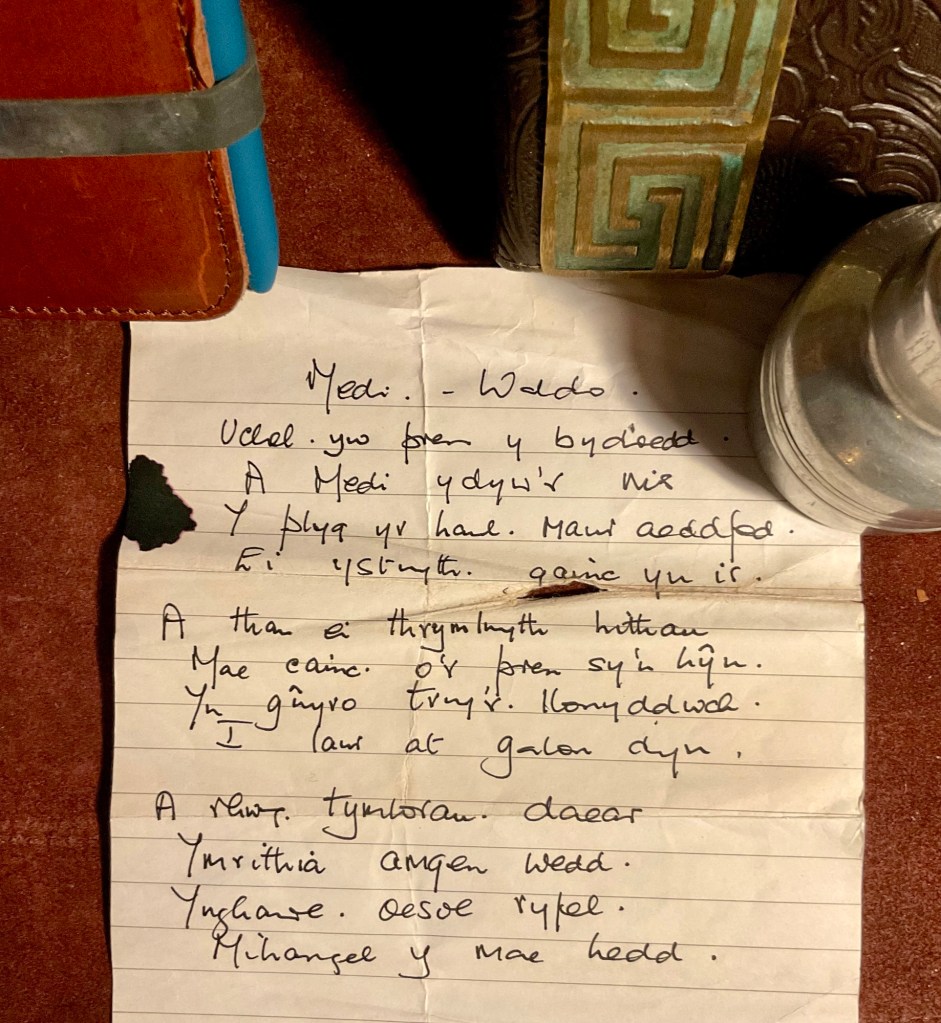 Medi. - Waldo.
Uchel. yw pren y bydoedd.
A Medi ydyw'r mis
Y plyg yr haul. Mawr aeddfed.
Ei ystwyth. gainc yn is.
A than ei thrymlwyth hithau
Mae cainc. o'r pren sy'n hŷn.
Yn gŵyro trwy'r. llonyddwch.
I lawr at galon dyn.
A rhwng. tymhorau. daear
Ymrithia amgen wedd.
oesol ryfel.
Mihangel y mae hedd.